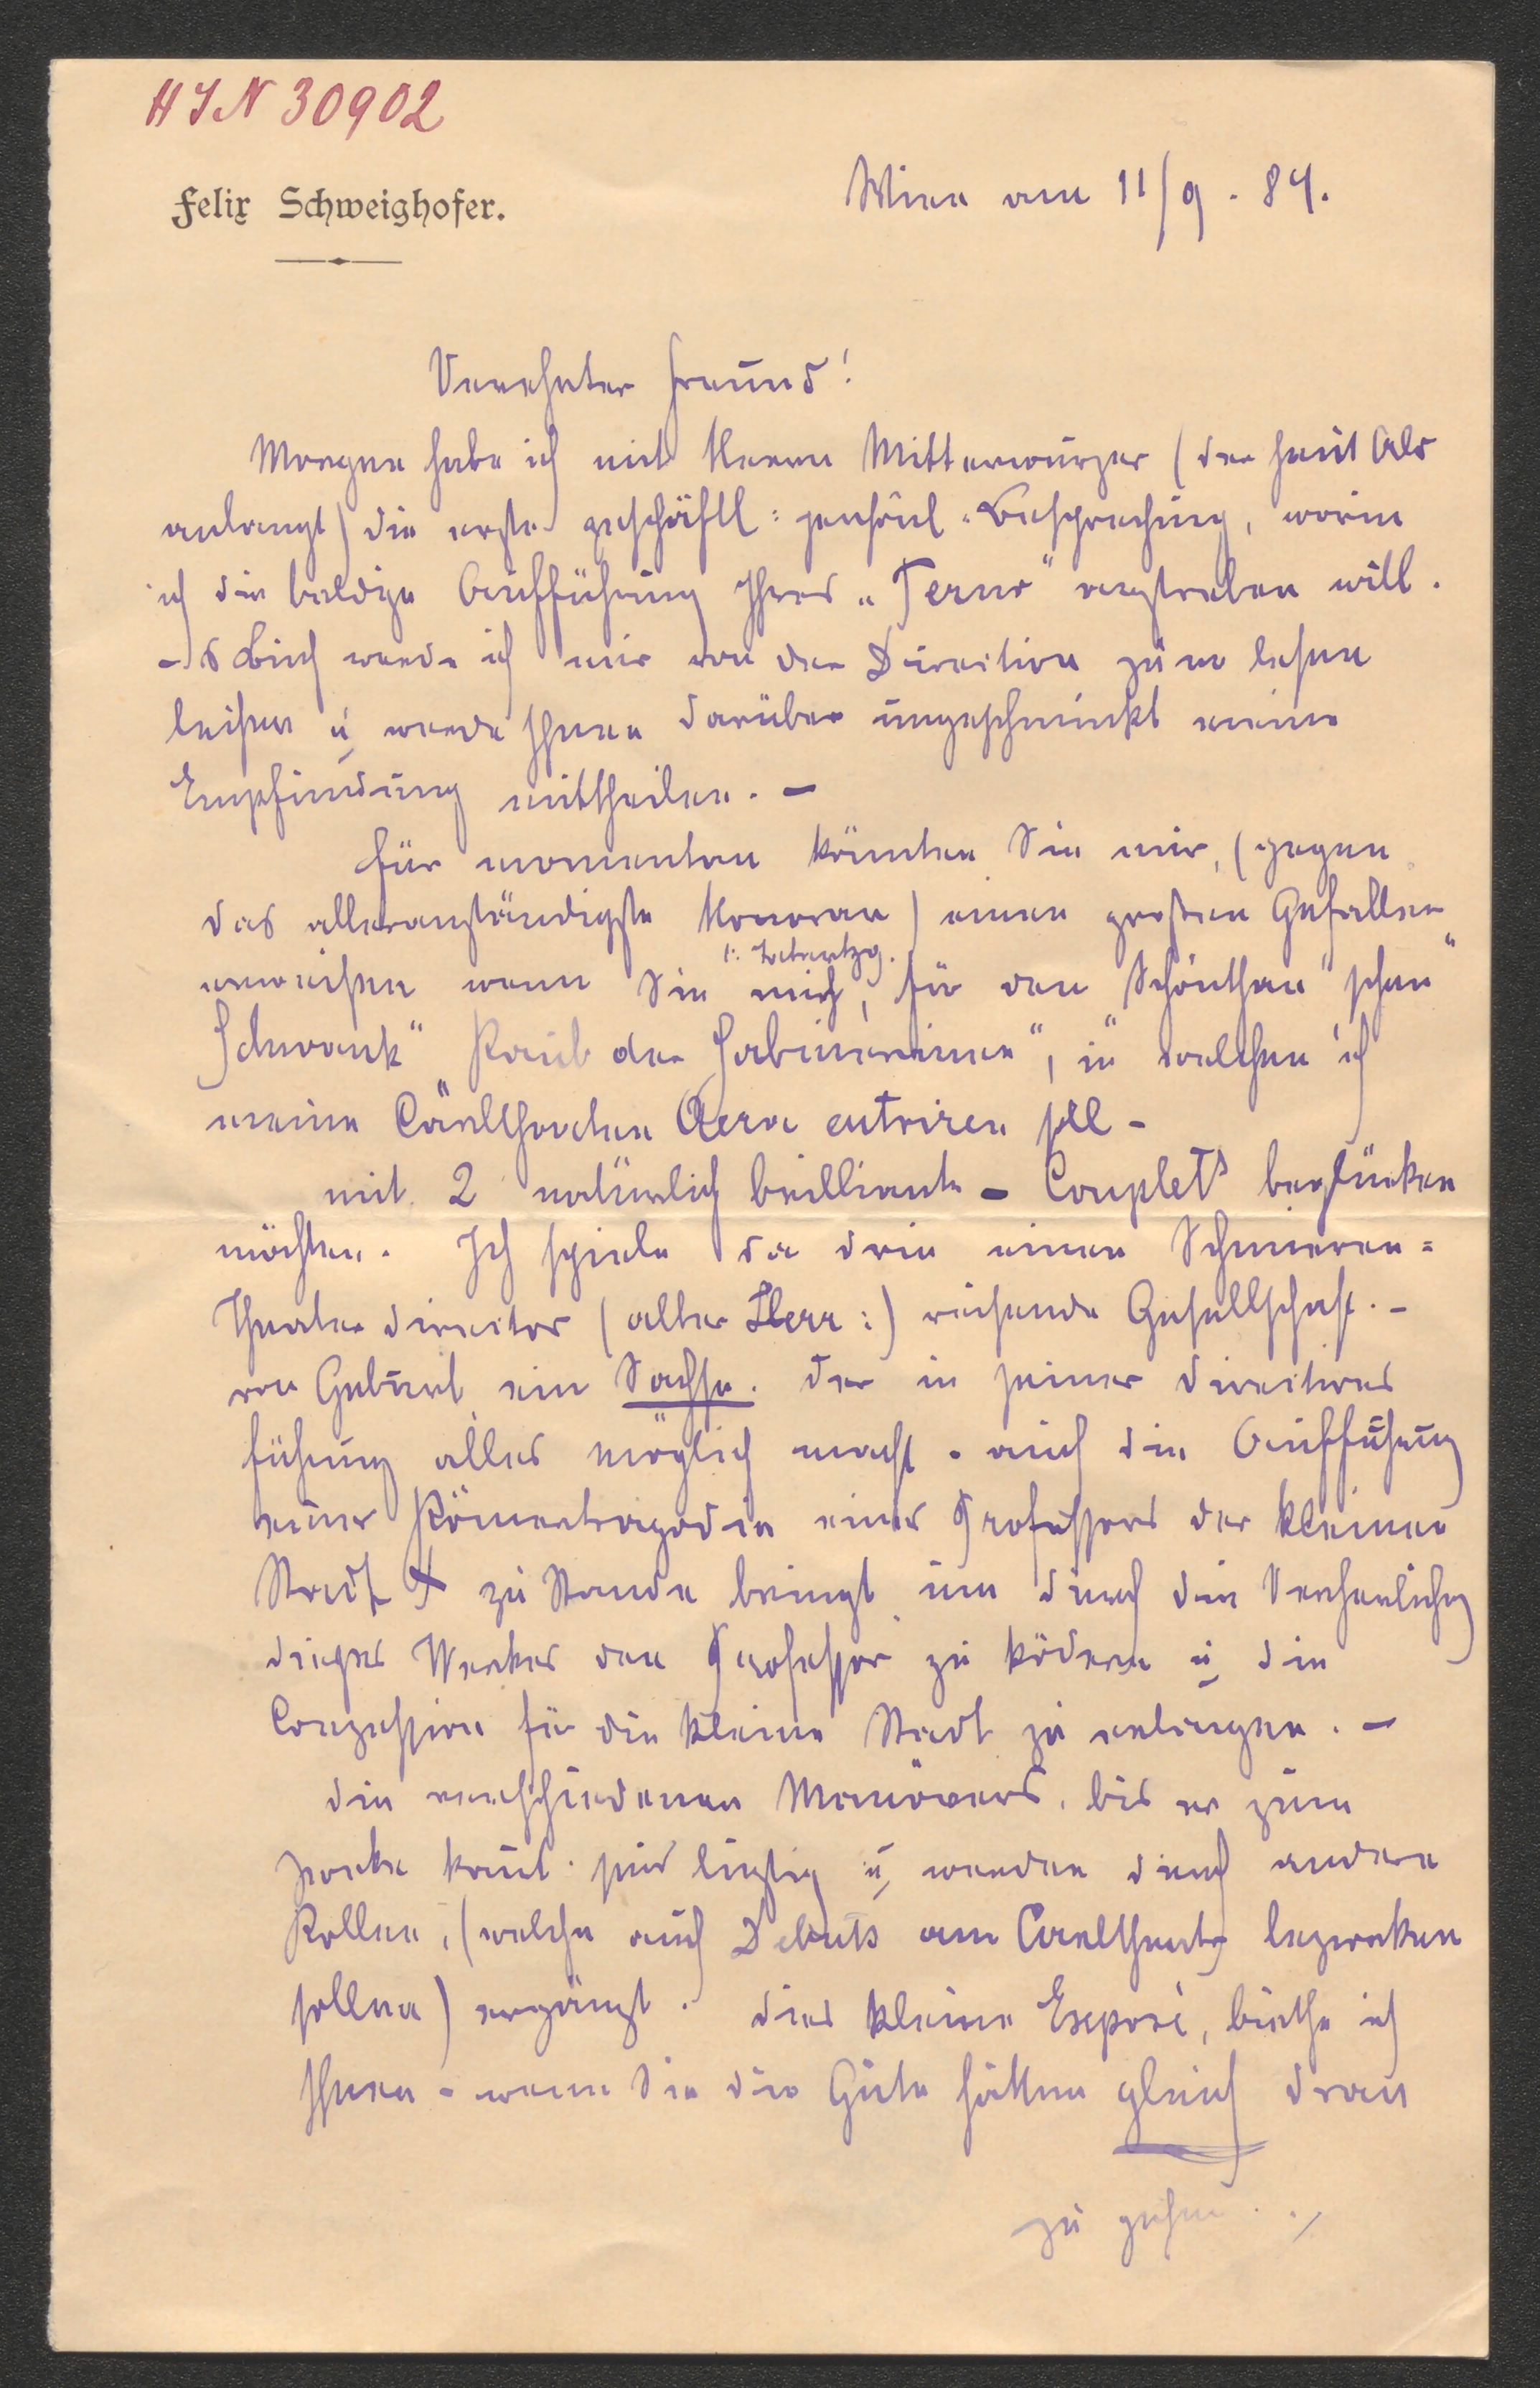 HIN 30902
Felix Schweighofer.
Wien am 11/9. 84.
Verehrter Freund!
Morgen habe ich mit Herrn Mitterwurzer (der heut Abs
anlangt) die erste geschäftl: persönl. Besprechung, worin
ich die baldige Aufführung Ihres „Terno" anstreben will.
-s Buch werde ich mir von der Direction zum lesen
leihen u werde Ihnen darüber ungeschminkt meine
Empfindung mittheilen. –
Für momentan könnten Sie mir, (gegen
das alleranständigste Honorar) einen großen Gefallen
erweisen wenn Sie mich, für den Schönthan"schen"
Schwank" Raub der Sabinerinnen", in welchen ich
meine Carltheater Aera entriren soll –
mit 2 natürlich brilliante – Couplets beglücken
möchten. Ich spiele da drin einen Schmieren=
Theater director (alter Herr:) reisende Gesellschaft. –
von Geburt ein Sachse. der in seiner Directions
führung alles möglich macht – auch die Aufführung
einer Römertragödie eines Professors der kleinen
Stadt X zu Stande bringt um durch die
dieses Werkes den Professor zu ködern u die
Conzession für die kleine Stadt zu erlangen. –
die verschiedenen Manövers, bis er zum
Zwecke komt sind lustig u werden durch andere
Rollen, (welche auch Debuts am Carltheater bezwecken
sollen) ergänzt. dies kleine Exposé, biethe ich
Ihnen – wenn Sie die Güte hätten gleich dran
zu gehen. ./